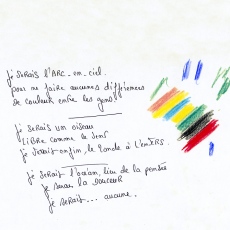 je serais l'ARC-en-ciel
pour ne faire aucunes différences
de couleur entre les gens
je serais un oiseau
libre comme le vent
je serais enfin, le monde à l'envers.
je serais l'océan, lieu de la pensée
je serais la douceur
je serais... aucune.